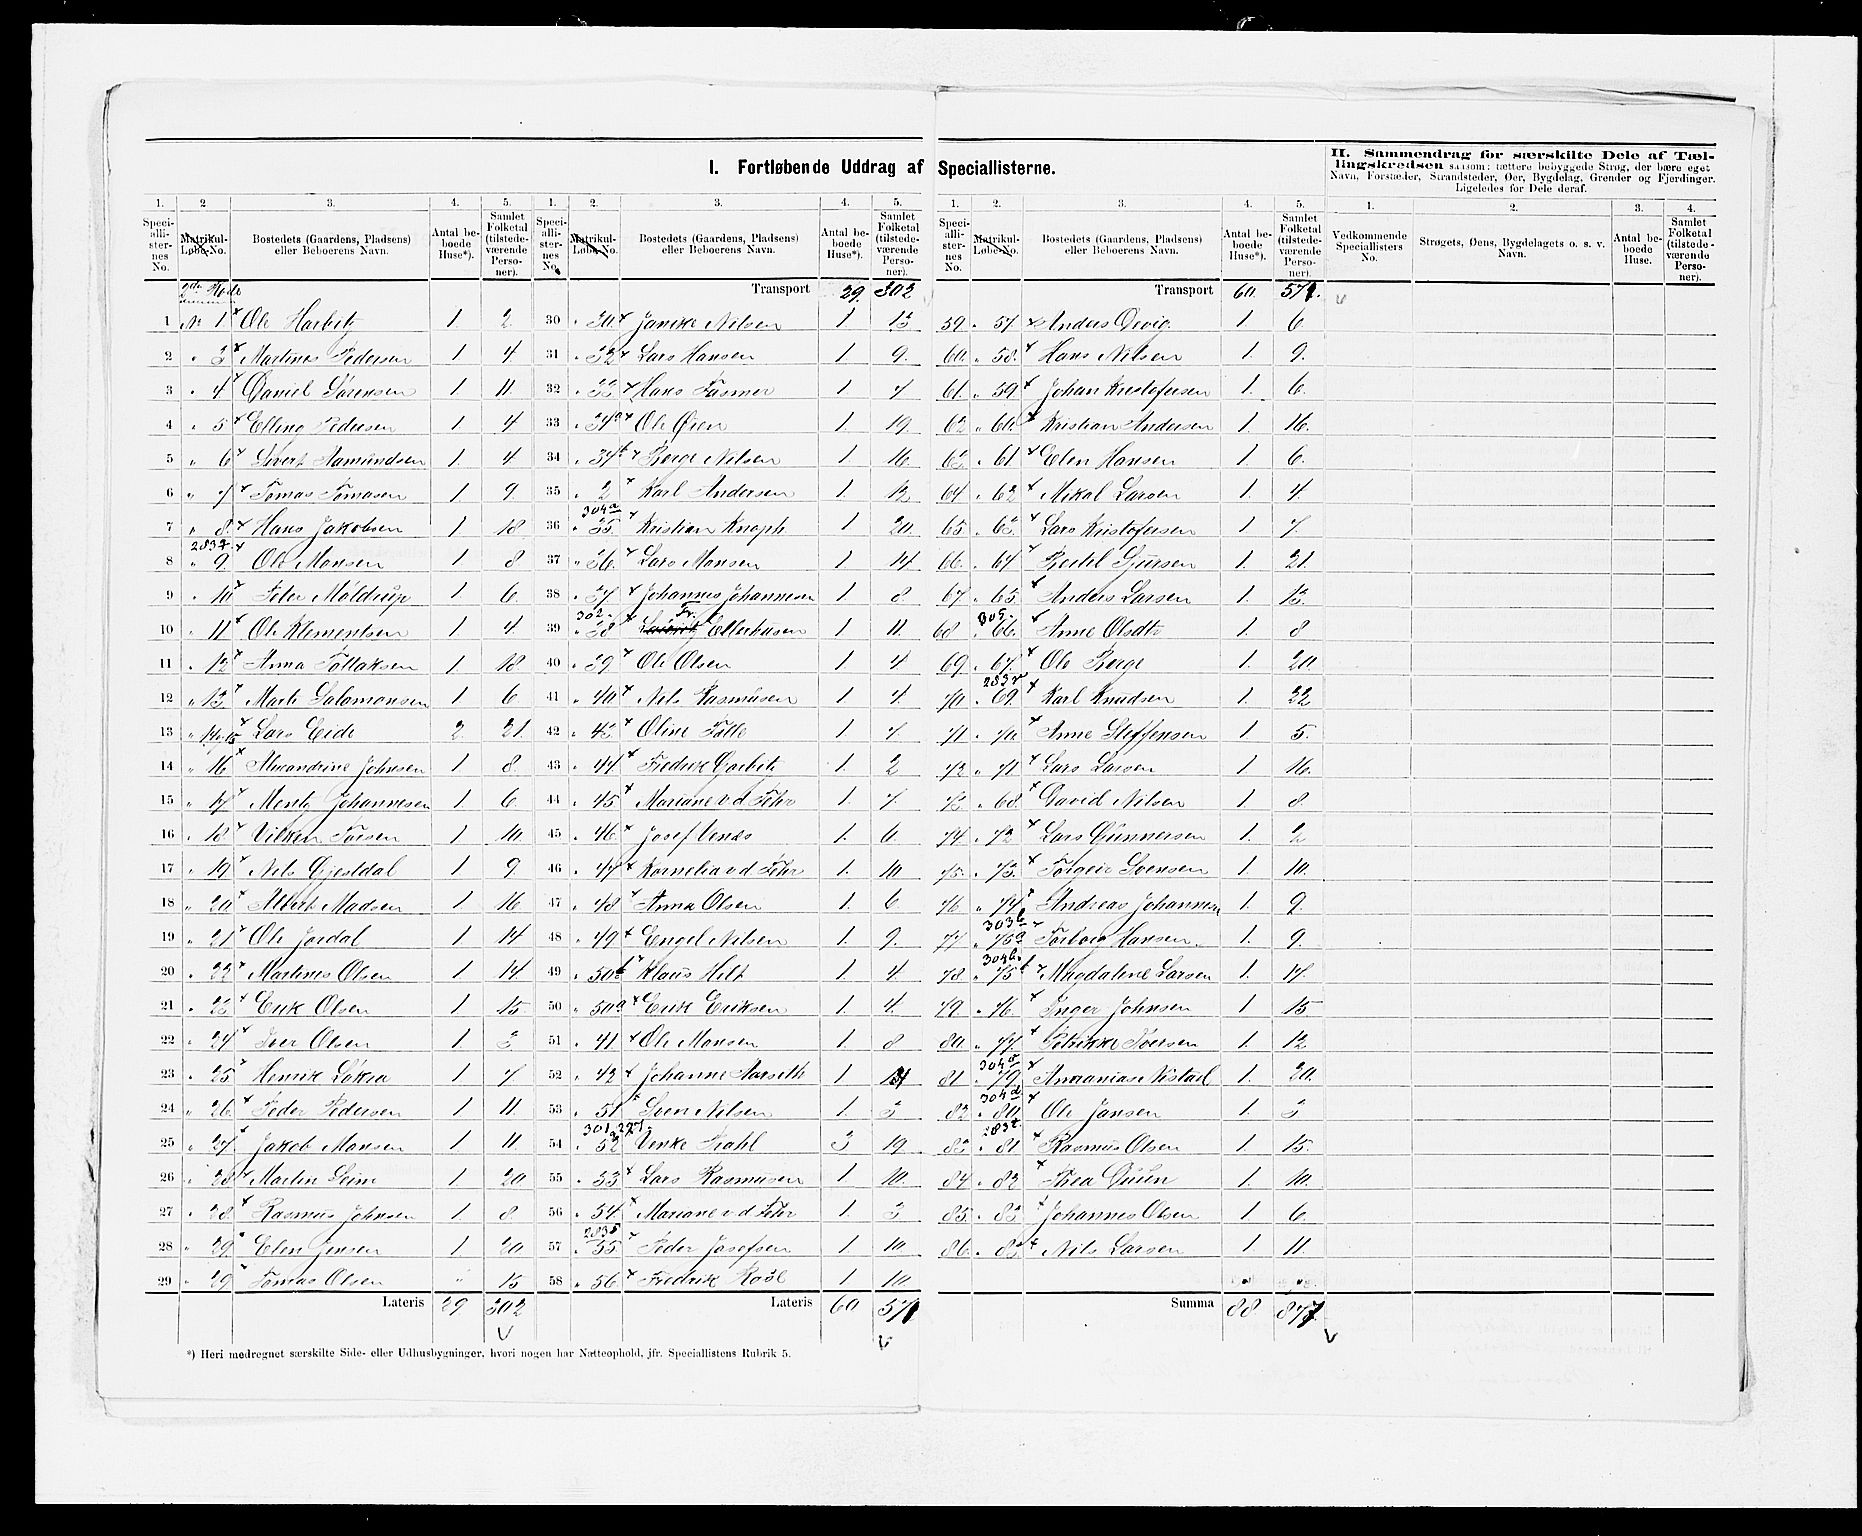 I. Fortløbende Uddrag af Speciallisterne.
II. Sammendrag for særskilte Dele af Tællingskredsen saasom: tættere bebyggede Strøg, der bære eget Navn, Forstæder, Strandsteder, Øer, Bygdelag, Grender og Fjerdinger. Ligeledes for Dele deraf.
1. 2 3. 4. 5. 1. 2. 3. 4. 5. 1. 2. 3. 4. 5. 1. 2. 3. 4.
Speciallisternes No. Matrikul-Løbe-No. Bostedets (Gaardens, Pladsens) eller Beboerens Navn. Antal beboede Huse*). Samlet Folketal (tilstedeværende Personer).
Speciallisternes No. Matrikul-Løbe-No. Bostedets (Gaardens, Pladsens) eller Beboerens Navn. Antal beboede Huse*). Samlet Folketal (tilstedeværende Personer).
Speciallisternes No. Matrikul-Løbe-No. Bostedets (Gaardens, Pladsens) eller Beboerens Navn. Antal beboede Huse*). Samlet Folketal (tilstedeværende Personer).
Vedkommende Speciallisters No. Strøgets, Øens, Bygdelagets o. s. v. Navn. Antal beboede Huse. Samlet Folketal (tilstedeværende Personer).
2de Rode
1 No 1 Ole Harbitz 1 2
2 " 3 Martinus Pedersen 1 4
3 " 4 Daniel Sørensen 1 11
4 " 5 Elling Pedersen 1 4
5 " 6 Sivert Aamundsen 1 4
6 " 7 Tomas Tomasen 1 9
7 " 8 Hans Jakobsen 1 18
2837
8 " 9 Ole Monsen 1 8
9 " 10 Peter Måldrup 1 6
10 " 11 Ole Klementsen 1 4
11 " 12 Anna Tollaksen 1 18
12 " 13 Marti Salomonsen 1 6
13 " 14 & 15 Lars Eide 2 21
14 " 16 Alexandrine Johnsen 1 8
15 " 17 Mentz Johannesen 1 6
16 " 18 Vilken 1 10
17 " 19 Nils Gjestdal 1 9
18 " 20 Albert Madsen 1 16
19 " 21 Ole Jordal 1 14
20 " 22 Martines Olsen 1 14
21 " 23 Erik Olsen 1 15
22 " 24 Iver Olsen 1 3
23 " 25 Henrik 1 7
24 " 26 Peder Pedersen 1 11
25 " 27 Jakob Monsen 1 11
26 " 28 Martin Seim 1 20
27 " 28 Rasmus Johnsen 1 8
28 " 29 Elen Jensen 1 20
29 " 29 Tomas Olsen " 15
Lateris 29 302
Transport 29. 302
30 " 30 Janike Nilsen 1 13
31 " 32 Lars Hansen 1 9
32 " 33 Hans Fasmer 1 7
33 " 34a Ole Øien 1 19
34 " 34b Berge Nilsen 1 16
35 " 2 Karl Andersen 1 12
304a
36 " 35 Kristian Knoph 1 20
37 " 36 Lars Monsen 1 14
38 " 37 Johannes Johannesen 1 8
302
39 " 38 Fr. Ellerhusen 1 11
40 " 39 Ole Olsen 1 4
41 " 40 Nils Rasmusen 1 4
42 " 43 Oline Tolle 1 7
43 " 44 Fredrik Garbitz 1 2
44 " 45 Mariane v d Fehr 1 7
45 " 46 Josef 1 6
46 " 47 Kornelia v d Fehr 1 10
47 " 48 Anna Olsen 1 6
48 " 49 Engel Nilsen 1 9
49 " 50b Klaus Hilt 1 4
50 " 50a Erik Eriksen 1 4
51 " 41 Ole Monsen 1 8
52 " 42 Johanne Aarseth 1
53 " 51 Sven Nilsen 1 3
301, 227
54 " 52 Venke Krohl 3 19
55 " 53 Lars Rasmusen 1 10
56 " 54 Mariane v d Fehr 1 3
2835
57 " 55 Peder Josefsen 1 10
58 " 56 Fredrik 1 10
Lateris 60 571
Transport 60 571
59 " 57 Anders Qvig 1 6
60 " 58 Hans Nilsen 1 9
61 " 59 Johan Kristofersen 1 6
62 " 60 Kristian Andersen 1 16
63 " 61 Elen Hansen 1 6
64 " 62 Mikal Larsen 1 4
65 " 63 Lars Kristofersen 1 7
66 " 64 Bertel Sjursen 1 21
67 " 65 Anders Larsen 1 13
305
68 " 66 Anne Olsdtr 1 8
69 " 67 Ole Berge 1 20
2837
70 " 69 Karl Knudsen 1 22
71 " 70 Anne Steffensen 1 5
72 " 71 Lars Larsen 1 16
73 " 68 David Nilsen 1 8
74 " 72 Lars Gunnersen 1 2
75 " 73 Torgeir Svensen 1 10
76 " 74 Andreas Johannesen 1 9
303b
77 " 75a Torborg Hansen 1 9
304b
78 " 75b Magdalene Larsen 1 17
79 " 76 Inger Johnsen 1 15
80 " 77 Petrikke Iversen 1 12
304
81 " 79 Annanias Nistad 1 20
304d
82 " 80 Ole Jansen 1 3
283
83 " 81 Rasmus Olsen 1 15
84 " 82 Thea 1 10
85 " 83 Johannes Olsen 1 6
86 " 83 Nils Larsen 1 11
Summa 88 877
*) Heri medregnet særskilte Side- eller Udhusbygninger, hvori nogen har Natteophold, jfr. Speciallistens Rubrik 5.